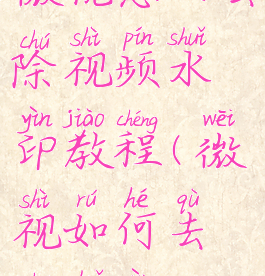 chú shì pín shuǐ
除视频水
yìn jiào chéng wēi
印教程(微
shì rú hé qù
视如何去